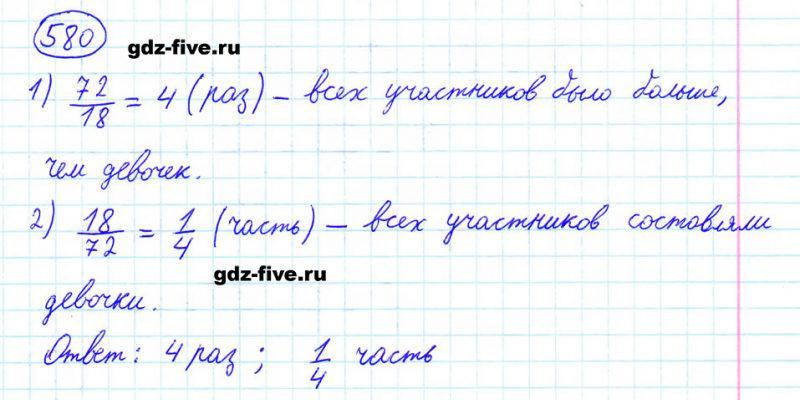 580
gdz-five.ru
1) 72/18 = 4 (раз) – всех участников было больше,
чем девочек.
2) 18/72 = 1/4 (часть) – всех участников составляли
gdz-five.ru
девочки.
Ответ: 4 раз; 1/4 часть